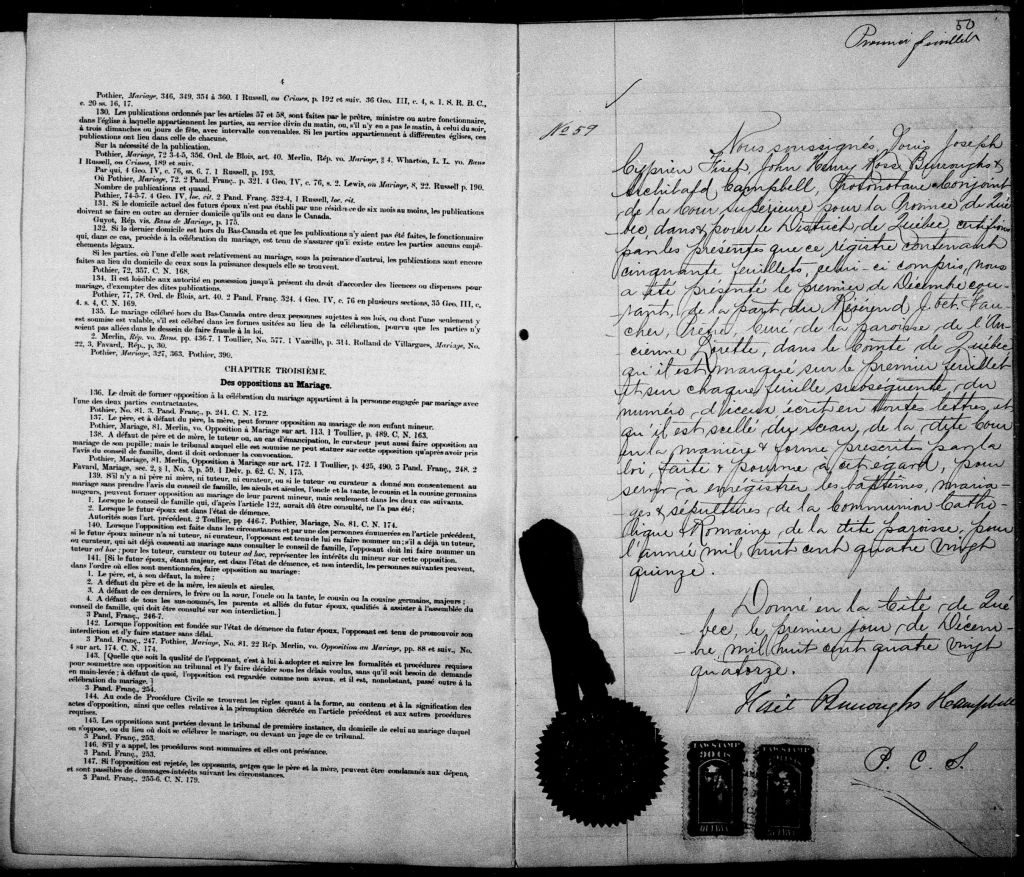 4
Pothier, Mariage, 346, 349, 354 à 360. 1 Russell, on Crimes, p. 192 et suiv. 36 Geo. III, c. 4, s. 1. S. R. B. C.,
c. 20 ss. 16, 17.
130. Les publications ordonnées par les articles 57 et 58, sont faites par le prêtre, ministre ou autre fonctionnaire,
dans l'église à laquelle appartiennent les parties, au service divin du matin, ou, s'il n'y en a pas le matin, à celui du soir,
à trois dimanches ou jours de fête, avec intervalle convenables. Si les parties appartiennent à différentes églises, ces
publications ont lieu dans celle de chacune.
Sur la nécessité de la publication.
Pothier, Mariage, 72 3-4-5, 356. Ord. de Blois, art. 40. Merlin, Rép. vo. Mariage, § 4. Wharton, L. L. vo. Bans
1 Russell, on Crimes, 189 et suiv.
Par qui, 4 Geo. IV, c. 76, ss. 6, 7. 1 Russell, p. 193.
Où Pothier, Mariage, 72. 2 Pand. Franç. p. 321. 4 Geo. IV, c. 76, s. 2. Lewis, on Mariage, 8, 22. Russell p. 190.
Nombre de publications et quand.
Pothier, 74-5-7. 4 Geo. IV, loc. cit. 2 Pand. Franç. 322-4, 1 Russell, loc. cit.
131. Si le domicile actuel des futurs époux n'est pas établi par une résidence de six mois au moins, les publications
doivent se faire en outre au dernier domicile qu'ils ont eu dans le Canada.
Guyot, Rép. vis. Bans de Mariage, p. 175.
132. Si le dernier domicile est hors du Bas-Canada et que les publications n'y aient pas été faites, le fonctionnaire
qui, dans ce cas, procède à la célébration du mariage, est tenu de s'assurer qu'il existe entre les parties aucuns empê-
chements légaux.
Si les parties, où l'une d'elle sont relativement au mariage, sous la puissance d'autrui, les publications sont encore
faites au lieu du domicile de ceux sous la puissance desquels elle se trouvent.
Pothier, 72, 357. C. N. 168.
134. Il est loisible aux autorité en possession jusqu'à présent du droit d'accorder des licences ou dispenses pour
mariage, d'exempter des dites publications.
Pothier, 77, 78. Ord. de Blois, art. 40. 2 Pand Franç. 324. 4 Geo. IV, c. 76 en plusieurs sections, 35 Geo. III, c,
4. s. 4, C. N. 169.
135. Le mariage célébré hors du Bas-Canada entre deux personnes sujettes à ses lois, ou dont l'une seulement y
est soumise est valable, s'il est célébré dans les formes usitées au lieu de la célébration, pourvu que les parties n'y
soient pas allées dans le dessein de faire fraude à la loi.
2. Merlin, Rép. vo. Bans, pp. 436-7. 1 Toullier, No. 577. 1 Vazeille, p. 314. Rolland de Villargues, Mariage, No.
22, 3. Favard., Rép., p. 30.
Pothier, Mariage, 327, 363. Pothier, 390.
CHAPITRE TROISIÈME.
Des oppositions au Mariage.
136. Le droit de former opposition à la célébration du mariage appartient à la personne engagée par mariage avec
l'une des deux parties contractantes.
Pothier, No. 81. 3. Pand. Franç., p. 241. C. N. 172.
137. Le père, et à défaut du père, la mère, peut former opposition au mariage de son enfant mineur.
Pothier, Mariage, 81. Merlin, vo. Opposition à Mariage sur art. 113, 1 Toullier, p. 489. C. N. 163.
138. A défaut de père et de mère, le tuteur ou, au cas d'émancipation, le curateur peut aussi faire opposition au
mariage de son pupille; mais le tribunal auquel elle est soumise ne peut statuer sur cette opposition qu'après avoir pris
l'avis du conseil de famille, dont il doit ordonner la convocation.
Pothier, Mariage, 81. Merlin, Opposition à Mariage sur art. 172. 1 Toullier, p. 425, 490. 3 Pand. Franç., 248. 2
Favard, Mariage, sec. 2, § 1, No. 3, p. 59. 1 Delv. p. 62. C. N. 175.
139. S'il n'y a ni père ni mère, ni tuteur, ni curateur, ou si le tuteur ou curateur a donné son consentement au
mariage sans prendre l'avis du conseil de famille, les aïeuls et aïeules, l'oncle et la tante, le cousin et la cousine germains
majeurs, peuvent former opposition au mariage de leur parent mineur, mais seulement dans les deux cas suivants.
1. Lorsque le conseil de famille qui, d'après l'article 122, aurait dû être consulté, ne l'a pas été;
2. Lorsque le futur époux est dans l'état de démence.
Autorités sous l'art. précédent. 2 Toullier, pp 446-7. Pothier, Mariage, No. 81. C. N. 174.
140. Lorsque l'opposition est faite dans les circonstances et par une des personnes énumérées en l'article précédent,
si le futur époux mineur n'a ni tuteur, ni curateur, l'opposant est tenu de lui en faire nommer un; s'il a déjà un tuteur,
ou curateur, qui ait déjà consenti au mariage sans consulter le conseil de famille, l'opposant doit lui faire nommer un
tuteur ad hoc: pour les tuteur, curateur ou tuteur ad hoc, représenter les intérêts du mineur sur cette opposition.
141. [Si le futur époux, étant majeur, est dans l'état de démence, et non interdit, les personnes suivantes peuvent,
dans l'ordre où elles sont mentionnées, faire opposition au mariage:
1. Le père, et, à son défaut, la mère;
2. A défaut du père et de la mère, les aïeuls et aïeules.
3. A défaut de ces derniers, le frère ou la sœur, l'oncle ou la tante, le cousin ou la cousine germains, majeurs;
4. A défaut de tous les sus-nommés, les parents et alliés du futur époux, qualifiés à assister à l'assemblée du
conseil de famille, qui doit être consulté sur son interdiction.]
3 Pand. Franç., 246-7.
142. Lorsque l'opposition est fondée sur l'état de démence du futur époux, l'opposant est tenu de promouvoir son
interdiction et d'y faire statuer sans délai.
3 Pand. Franç., 247. Pothier, Mariage, No. 81. 22 Rép. Merlin, vo. Opposition au Mariage, pp. 88 et suiv., No.
4 sur art. 174. C. N. 174.
143. [Quelle que soit la qualité de l'opposant, c'est à lui à adopter et suivre les formalités et procédures requises
pour soumettre son opposition au tribunal et l'y faire décider sous les délais voulus, sans qu'il soit besoin de demande
en main-levée; à défaut de quoi, l'opposition est regardée comme non avenu, et il est, nonobstant, passé outre à la
célébration du mariage.]
3 Pand. Franç., 254.
144. Au code de Procédure Civile se trouvent les règles quant à la forme, au contenu et à la signification des
actes d'opposition, ainsi que celles relatives à la péremption décrétée en l'article précédent et aux autres procédures
requises.
145. Les oppositions sont portées devant le tribunal de première instance, du domicile de celui au mariage duquel
on s'oppose, ou du lieu où doit se célébrer le mariage, ou devant un juge de ce tribunal.
3 Pand. Franç., 253.
146. S'il y a appel, les procédures sont sommaires et elles ont préséance.
3 Pand. Franç., 253.
147. Si l'opposition est rejetée, les opposants, autres que le père et la mère, peuvent être condamnés aux dépens,
et sont passibles de dommages-intérêts suivant les circonstances.
3 Pand. Franç., 255-6. C. N. 179.
50
Premier feuillet
No 59
Nous soussignés, Louis Joseph
Cyprien Fiset, John Henry Ross Burroughs &
Archibald Campbell, Protonotaire Conjoint
de la Cour Supérieure pour la Province de Qué-
bec dans & pour le District de Québec, certifions
par les présentes que ce registre contenant
cinquante feuillets, celui-ci compris, nous
a été présenté le premier de Décembre cou-
rant, de la part du Révérend Jbet. Fau-
cher, Prêtre, Curé de la paroisse de l'An-
cienne Lorette, dans le Comté de Québec
qu'il est marqué sur le premier feuillet
et sur chaque feuille subséquente, du
numéro d'iceux écrit en toutes lettres, et
qu'il est scellé du sceau, de la dite Cour
en la manière & forme prescrites par la
loi, faite & pourvue à cet égard, pour
servir à enrégistrer les baptêmes, maria-
ges & sépultures de la Communion Catho-
lique & Romaine de la dite paroisse, pour
l'année mil huit cent quatre vingt
quinze.
Donné en la Cité de Qué-
bec, le premier jour de Décem-
bre, mil huit cent quatre vingt
quatorze.
Fiset Burroughs & Campbell
P. C. S.
LAW STAMP
LAW STAMP